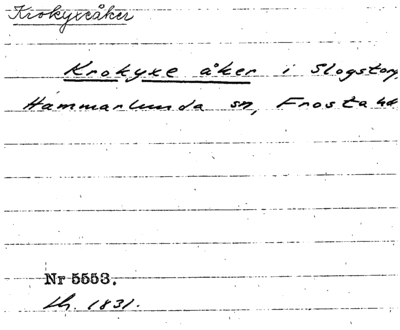 Krokyxeåker
Krokyxe åker i Slogstorp
Hammarlunda sn, Frosta hd
Nr 5553.
1831.